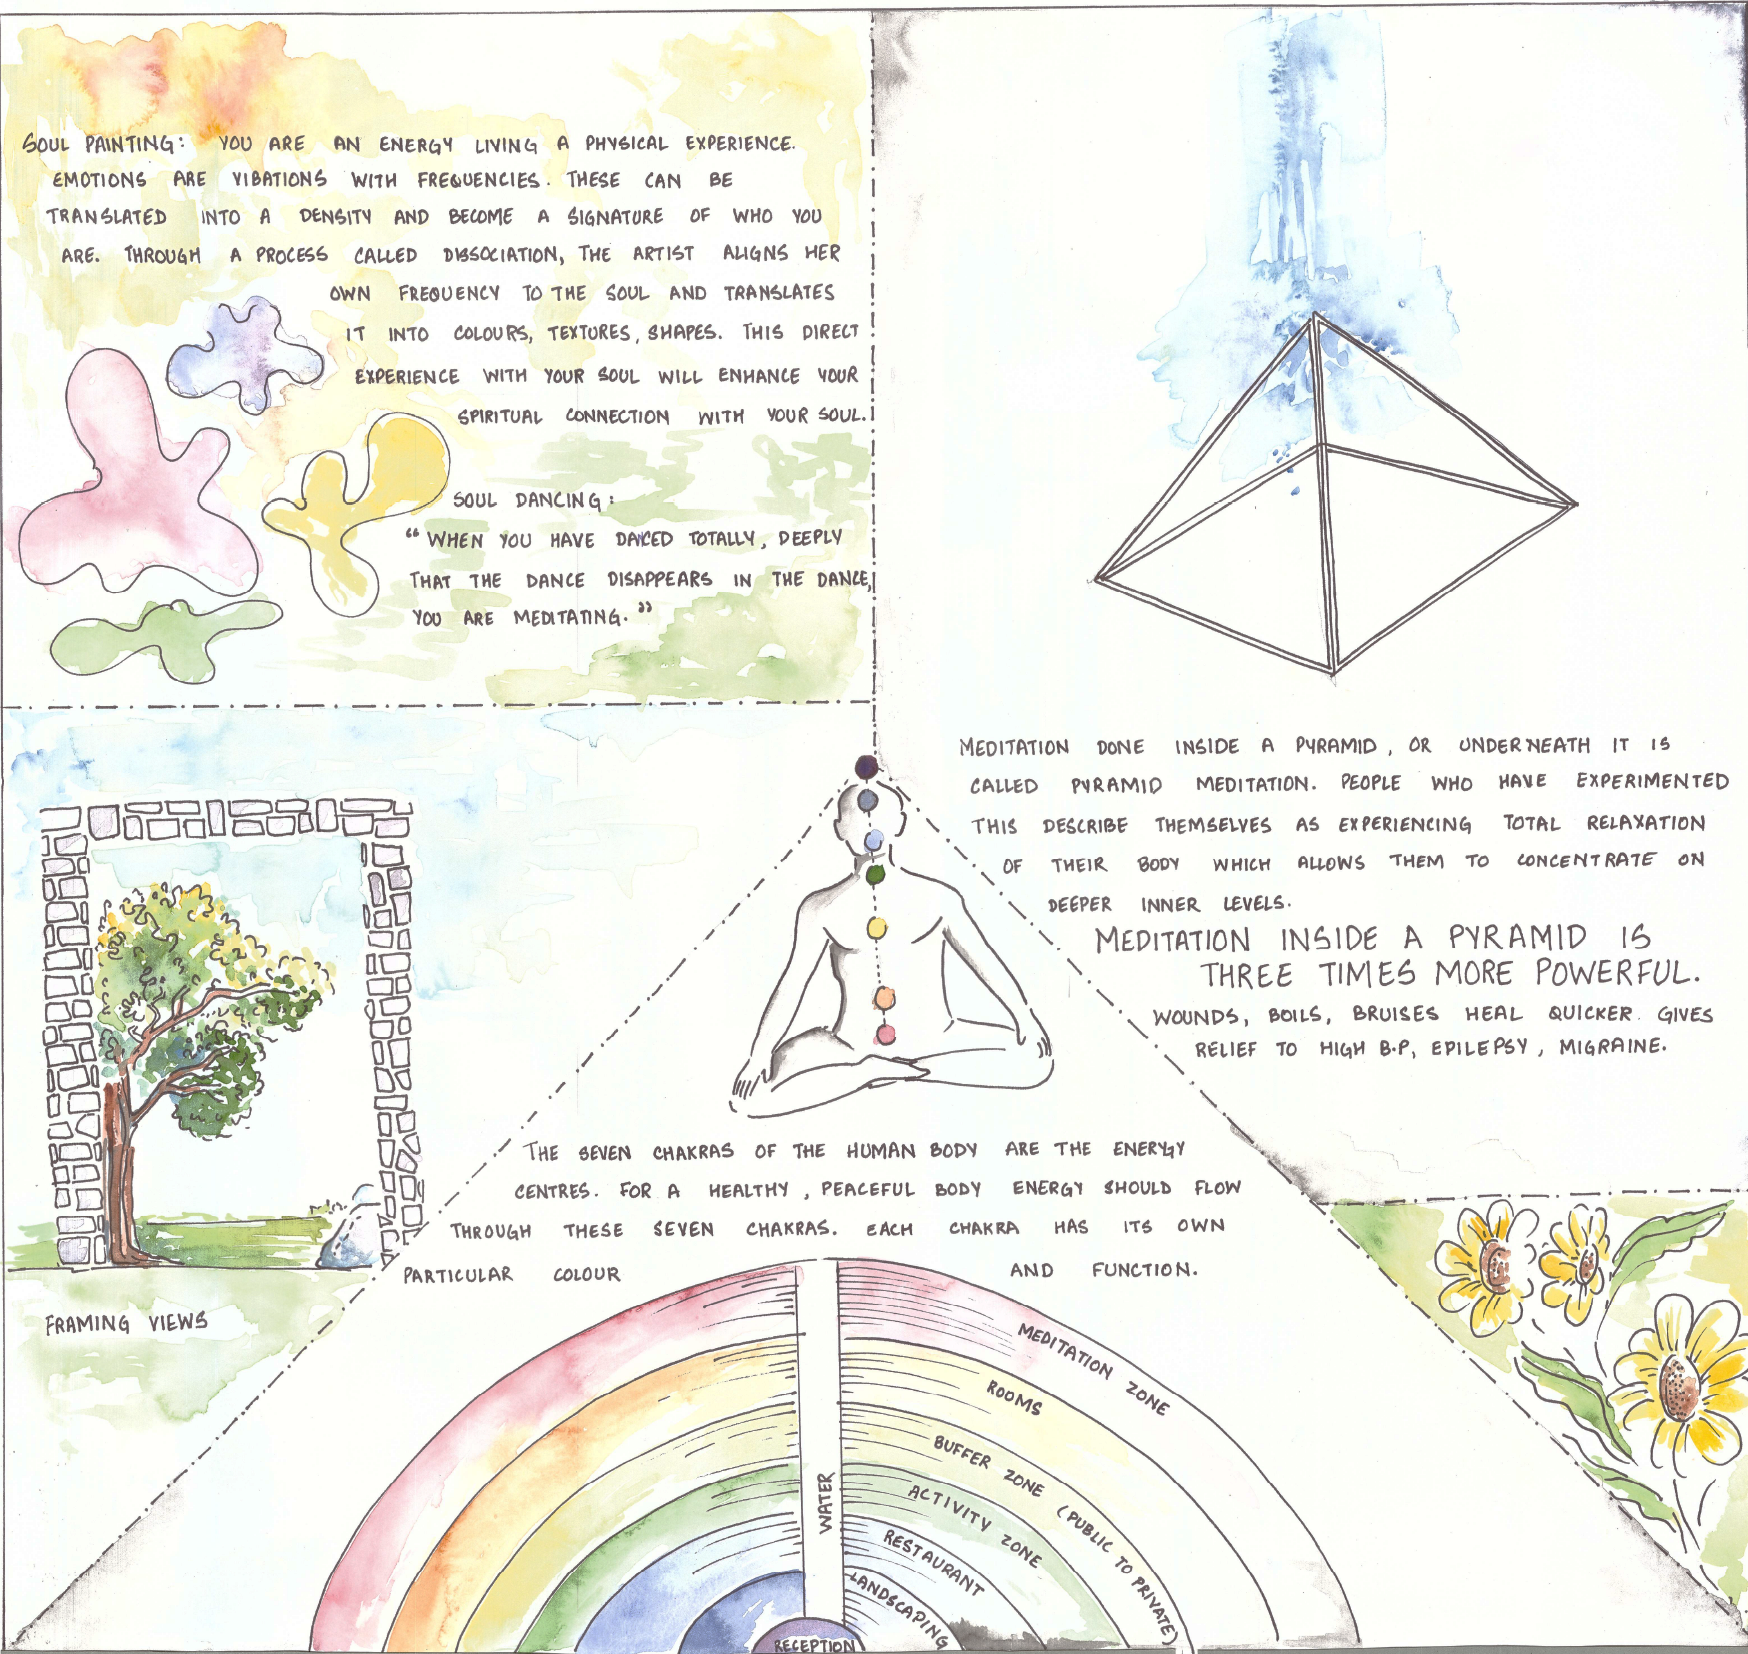 SOUL PAINTING: YOU ARE AN ENERGY LIVING A PHYSICAL EXPERIENCE.
EMOTIONS ARE VIBATIONS WITH FREQUENCIES. THESE CAN BE
TRANSLATED INTO A DENSITY AND BECOME A SIGNATURE OF WHO YOU
ARE. THROUGH A PROCESS CALLED DISSOCIATION, THE ARTIST ALIGNS HER
OWN FREQUENCY TO THE SOUL AND TRANSLATES
IT INTO COLOURS, TEXTURES, SHAPES. THIS DIRECT
EXPERIENCE WITH YOUR SOUL WILL ENHANCE YOUR
SPIRITUAL CONNECTION WITH YOUR SOUL.
SOUL DANCING:
"WHEN YOU HAVE DANCED TOTALLY, DEEPLY
THAT THE DANCE DISAPPEARS IN THE DANCE,
YOU ARE MEDITATING."
MEDITATION DONE INSIDE A PYRAMID, OR UNDERNEATH IT IS
CALLED PYRAMID MEDITATION. PEOPLE WHO HAVE EXPERIMENTED
THIS DESCRIBE THEMSELVES AS EXPERIENCING TOTAL RELAXATION
OF THEIR BODY WHICH ALLOWS THEM TO CONCENTRATE ON
DEEPER INNER LEVELS.
MEDITATION INSIDE A PYRAMID IS
THREE TIMES MORE POWERFUL.
WOUNDS, BOILS, BRUISES HEAL QUICKER. GIVES
RELIEF TO HIGH B.P, EPILEPSY, MIGRAINE.
FRAMING VIEWS
THE SEVEN CHAKRAS OF THE HUMAN BODY ARE THE ENERGY
CENTRES. FOR A HEALTHY, PEACEFUL BODY ENERGY SHOULD FLOW
THROUGH THESE SEVEN CHAKRAS. EACH CHAKRA HAS ITS OWN
PARTICULAR COLOUR AND FUNCTION.
MEDITATION ZONE
ROOMS
BUFFER ZONE (PUBLIC TO PRIVATE)
ACTIVITY ZONE
RESTAURANT
LANDSCAPING
WATER
RECEPTION